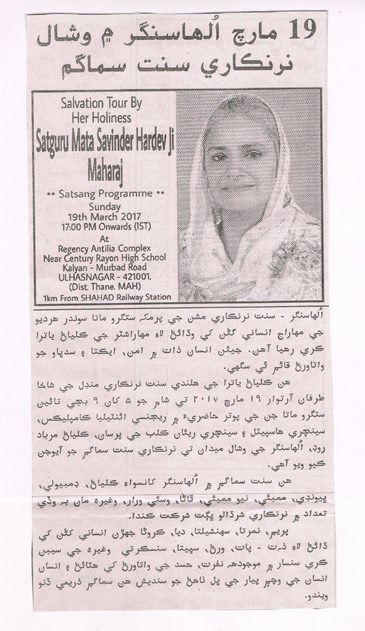 19 مارچ اُلهاسنگر ۾ وشال
نرنڪاري سنت سماگم
Salvation Tour By
Her Holiness
Satguru Mata Savinder Hardev Ji
Maharaj
** Satsang Programme **
Sunday
19th March 2017
17:00 PM Onwards (IST)
At
Regency Antilia Complex
Near Century Rayon High School
Kalyan - Murbad Road
ULHASNAGAR - 421001.
(Dist. Thane. MAH)
1km From SHAHAD Railway Station
اُلهاسنگر - سنت نرنڪاري مشن جي پرمک ستگرو ماتا سوندر هرديو
جي مهاراج انساني گڻن کي وڌائڻ لاءِ مهاراشٽر جي ڪلياڻ ياترا
ڪري رهيا آهن. جيئن انسان ذات ۾ امن، ايڪتا ۽ سدڀاو جو
واتاورڻ قائم ٿي سگهي.
هن ڪلياڻ ياترا جي هلندي سنت نرنڪاري منڊل جي شاخا
طرفان آرتوار ١٩ مارچ ٢٠١٧ تي شام جو ٥ کان ٩ بجي تائين
ستگرو ماتا جن جي پوتر حاضريءَ ۾ ريجنسي ائنٽيليا ڪامپليڪس،
سينچري هاسپيٽل ۽ سينچري ريئان ڪلب جي ڀرسان، ڪلياڻ مرباد
روڊ، اُلهاسنگر جي وشال ميدان تي نرنڪاري سنت سماگم جو آيوجن
ڪيو ويو آهي.
هن سنت سماگم ۾ اُلهاسنگر کانسواءِ ڪلياڻ، ڊمبيولي،
ڀيونڊي، ممبئي، نيو ممبئي، ٿاڻا، وسئي ورار، وغيره مان به وڏي
تعداد ۾ نرنڪاري شرڌالو ڀڳت شرڪت ڪندا.
پريم، نمرتا، سهنشيلتا، ديا، ڪروڻا جهڙن انساني گڻن کي
ڌارڻ لاءِ ذات - پات، ورڻ، سڀيتا، سنسڪرتي وغيره جي سببن
ڪري سنسار ۾ موجوده نفرت، حسد جي واتاورڻ کي هٽائڻ ۽
انسان جي وچ ۾ پيار جي پل ٺاهڻ جو سنديش هن سماگم ذريعي ڏنو
ويندو.